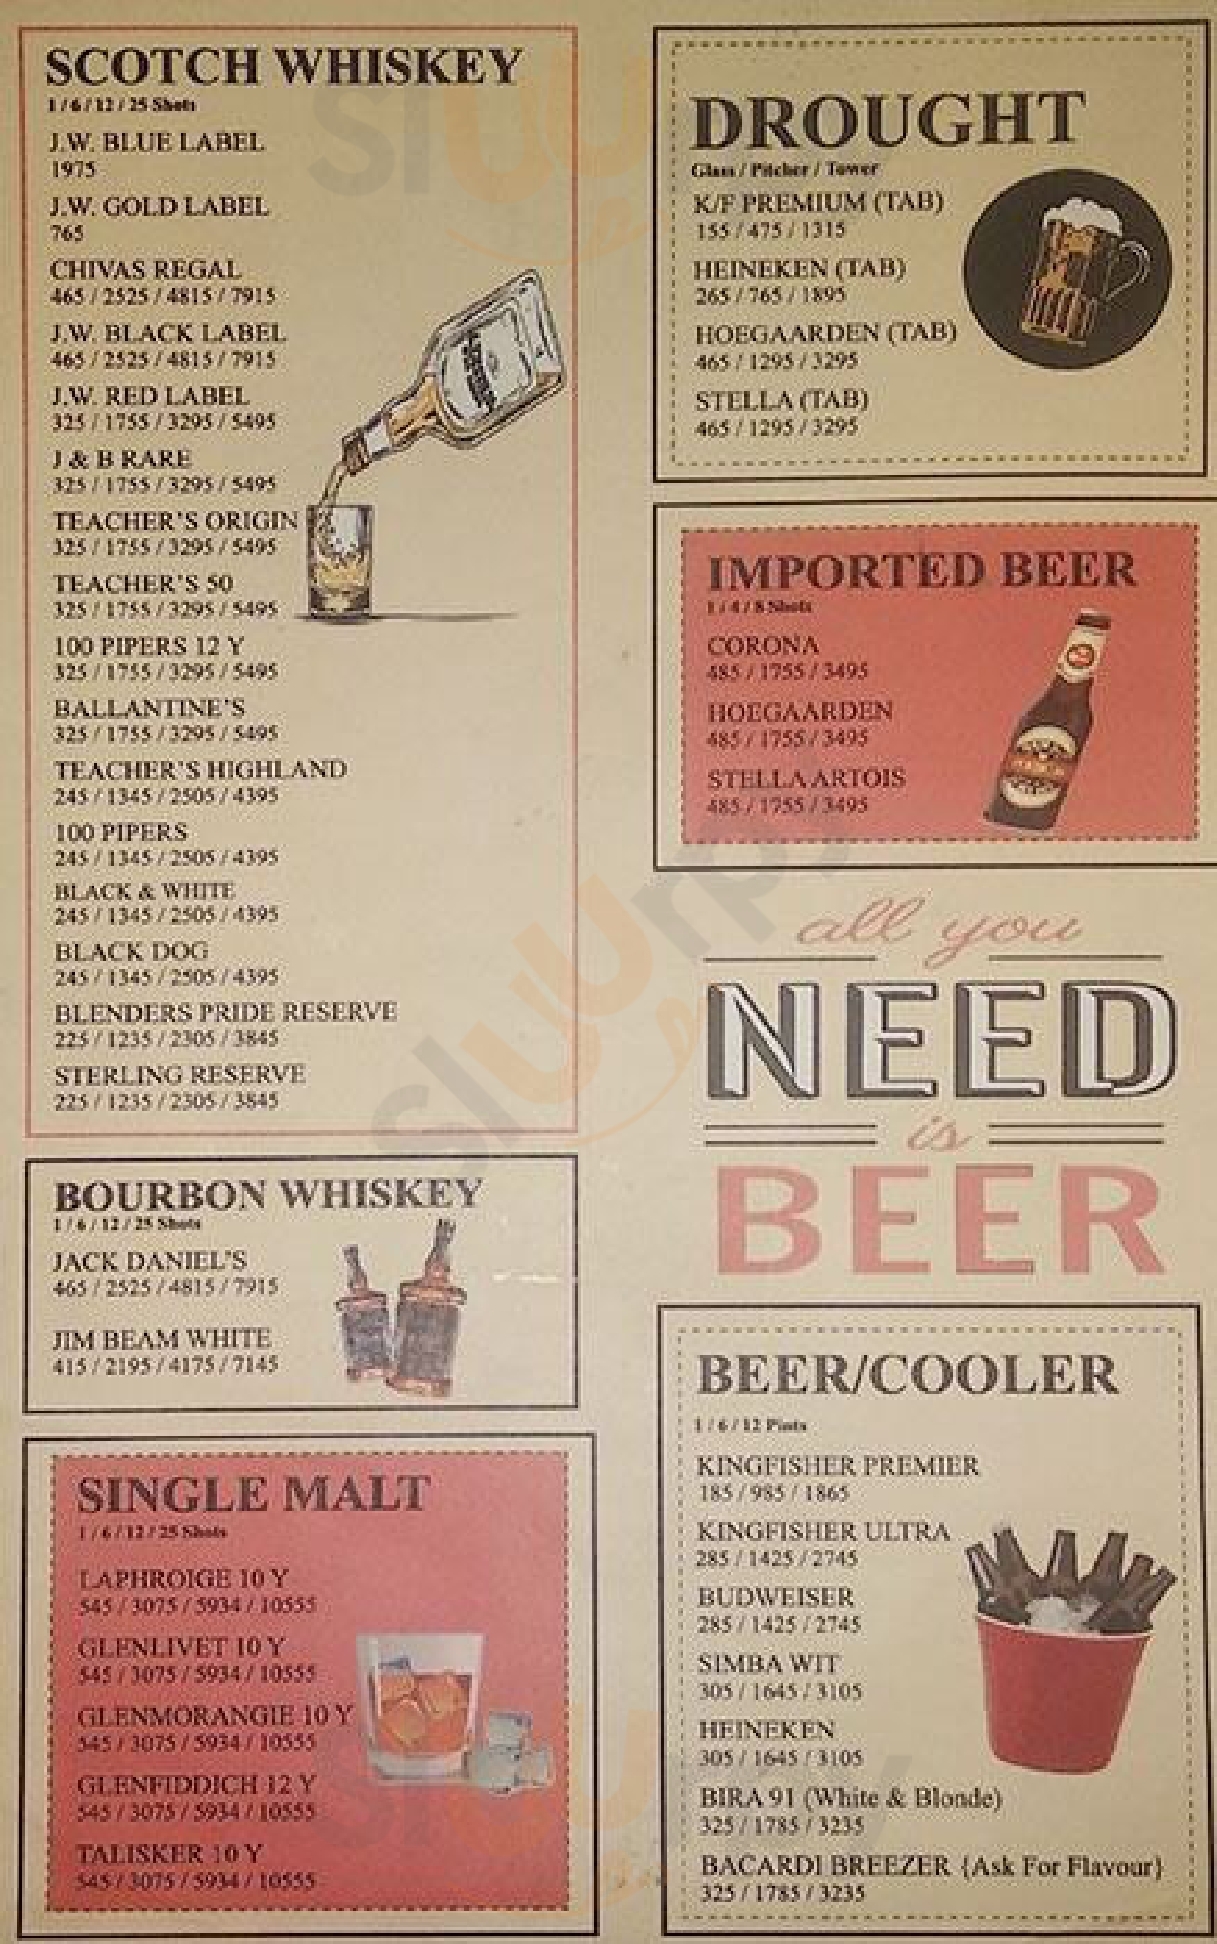 SCOTCH WHISKEY
1 / 6 / 12 / 25 Shots
J.W. BLUE LABEL
1975
J.W. GOLD LABEL
765
CHIVAS REGAL
465 / 2525 / 4815 / 7915
J.W. BLACK LABEL
465 / 2525 / 4815 / 7915
J.W. RED LABEL
325 / 1755 / 3295 / 5495
J & B RARE
325 / 1755 / 3295 / 5495
TEACHER'S ORIGIN
325 / 1755 / 3295 / 5495
TEACHER'S 50
325 / 1755 / 3295 / 5495
100 PIPERS 12 Y
325 / 1755 / 3295 / 5495
BALLANTINE'S
325 / 1755 / 3295 / 5495
TEACHER'S HIGHLAND
245 / 1345 / 2505 / 4395
100 PIPERS
245 / 1345 / 2505 / 4395
BLACK & WHITE
245 / 1345 / 2505 / 4395
BLACK DOG
245 / 1345 / 2505 / 4395
BLENDERS PRIDE RESERVE
225 / 1235 / 2305 / 3845
STERLING RESERVE
225 / 1235 / 2305 / 3845
BOURBON WHISKEY
1 / 6 / 12 / 25 Shots
JACK DANIEL'S
465 / 2525 / 4815 / 7915
JIM BEAM WHITE
415 / 2195 / 4175 / 7145
SINGLE MALT
1 / 6 / 12 / 25 Shots
LAPHROIGE 10 Y
545 / 3075 / 5934 / 10555
GLENLIVET 10 Y
545 / 3075 / 5934 / 10555
GLENMORANGIE 10 Y
545 / 3075 / 5934 / 10555
GLENFIDDICH 12 Y
545 / 3075 / 5934 / 10555
TALISKER 10 Y
545 / 3075 / 5934 / 10555
DROUGHT
Glass / Pitcher / Tower
K/F PREMIUM (TAB)
155 / 475 / 1315
HEINEKEN (TAB)
265 / 765 / 1895
HOEGAARDEN (TAB)
465 / 1295 / 3295
STELLA (TAB)
465 / 1295 / 3295
IMPORTED BEER
1 / 4 / 8 Shots
CORONA
485 / 1755 / 3495
HOEGAARDEN
485 / 1755 / 3495
STELLA ARTOIS
485 / 1755 / 3495
all you
NEED
is
BEER
BEER/COOLER
1 / 6 / 12 Pints
KINGFISHER PREMIER
185 / 985 / 1865
KINGFISHER ULTRA
285 / 1425 / 2745
BUDWEISER
285 / 1425 / 2745
SIMBA WIT
305 / 1645 / 3105
HEINEKEN
305 / 1645 / 3105
BIRA 91 (White & Blonde)
325 / 1785 / 3235
BACARDI BREEZER {Ask For Flavour}
325 / 1785 / 3235
slurrp